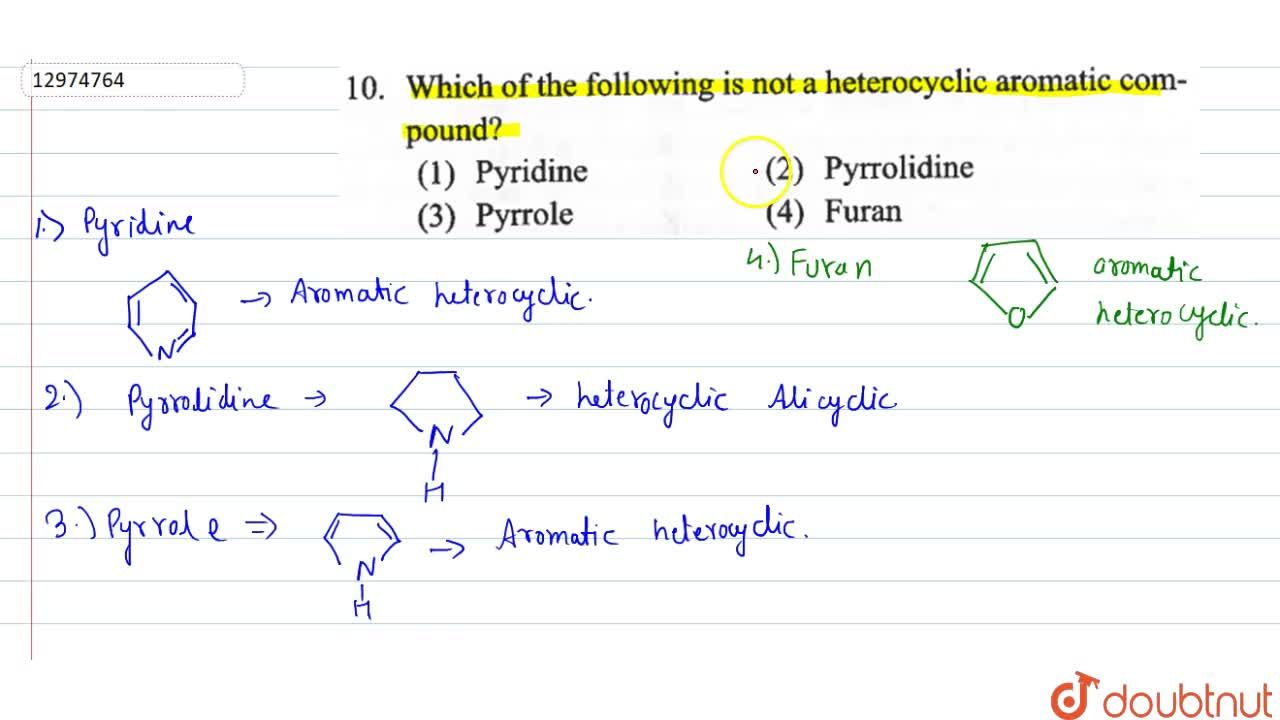 12974764
10. Which of the following is not a heterocyclic aromatic com-
pound?
(1) Pyridine (2) Pyrrolidine
(3) Pyrrole (4) Furan
1.) Pyridine
N
→ Aromatic heterocyclic.
4.) Furan
O
aromatic
heterocyclic.
2.) Pyrrolidine →
N
H
→ heterocyclic Alicyclic
3.) Pyrrole ⇒
N
H
→ Aromatic heterocyclic.
doubtnut